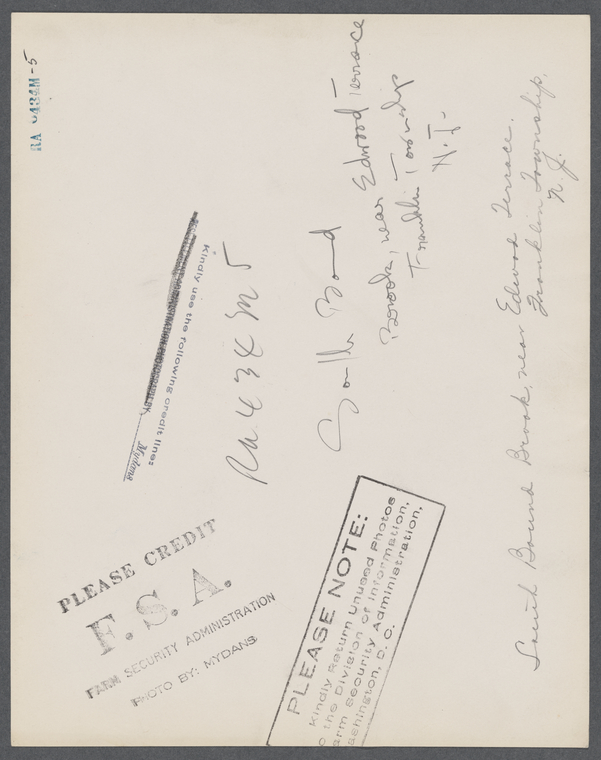 RA 434M-5
Kindly use the following credit line:
Mydans
RA 434 M 5
South Bound
Brook, near Edwood Terrace
Franklin Township
N.J.
South Bound Brook, near Edwood Terrace.
Franklin Township,
N.J.
PLEASE CREDIT
F. S. A.
FARM SECURITY ADMINISTRATION
PHOTO BY: MYDANS
PLEASE NOTE:
Kindly Return Unused Photos
o the Division of Information,
arm Security Administration,
ashington, D. C.